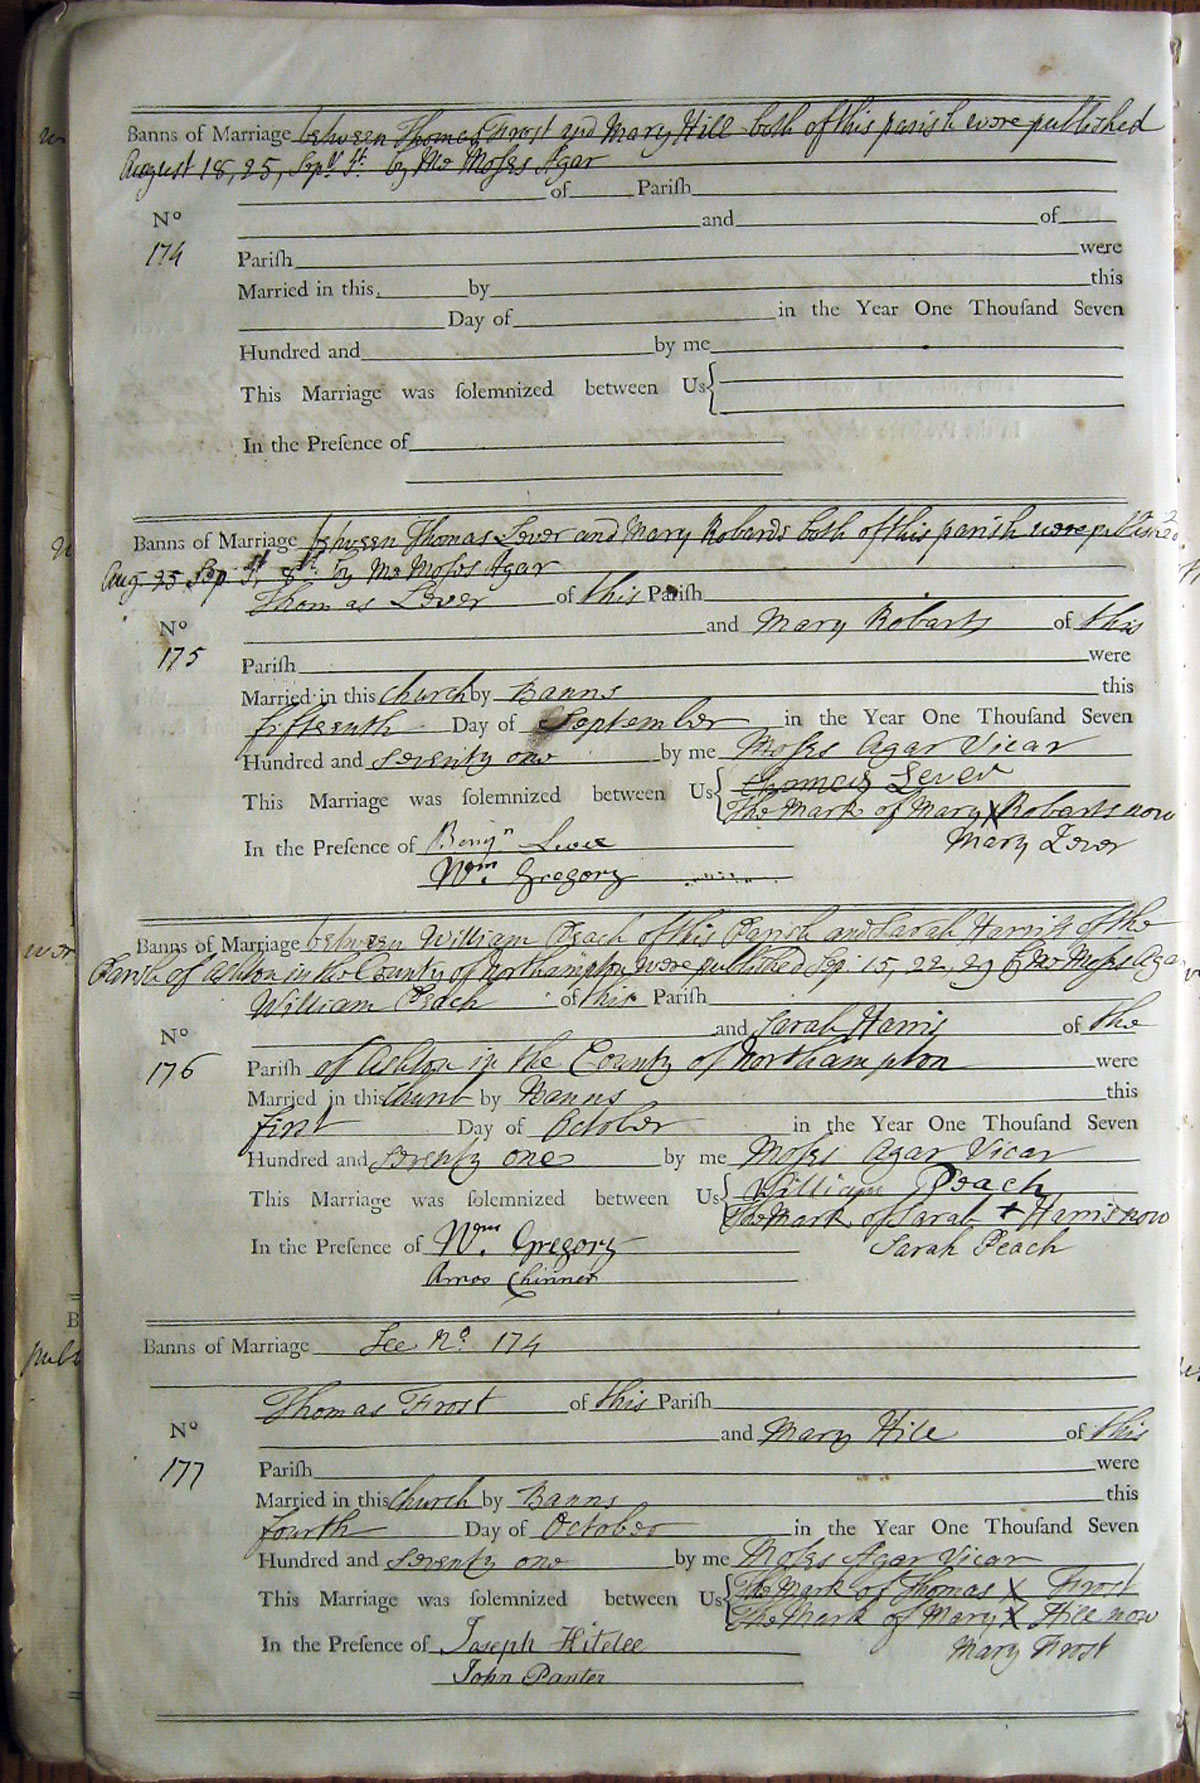 Banns of Marriage between Thomas Frost and Mary Hill both of this parish were published
August 18, 25, Sepr. 1st. by Mr Moses Agar
of Pariſh
No and of
174 Pariſh were
Married in this by this
Day of in the Year One Thouſand Seven
Hundred and by me
This Marriage was ſolemnized between Us
In the Preſence of
Banns of Marriage between Thomas Lever and Mary Robards both of this parish were published
Aug. 25 Sep 1st, 8th. by Mr Moses Agar
Thomas Lever of this Pariſh
No and Mary Robarts of this
175 Pariſh were
Married in this Church by Banns this
fifteenth Day of September in the Year One Thouſand Seven
Hundred and seventy one by me Moses Agar Vicar
This Marriage was ſolemnized between Us Thomas Lever
The Mark of Mary X Robarts now
In the Preſence of Benjn Lever Mary Lever
Wm. Gregory
Banns of Marriage between William Peach of this Parish and Sarah Harriss of the
Parish of Ashton in the County of Northampton were published Sep. 15, 22, 29 by Mr Moses Agar
William Peach of this Pariſh
No and Sarah Harris of the
176 Pariſh of Ashton in the County of Northampton were
Married in this Church by Banns this
first Day of October in the Year One Thouſand Seven
Hundred and seventy one by me Moses Agar Vicar
This Marriage was ſolemnized between Us William Peach
The Mark of Sarah + Harris now
In the Preſence of Wm. Gregory Sarah Peach
Amos Chinner
Banns of Marriage See No. 174
Thomas Frost of this Pariſh
No and Mary Hill of this
177 Pariſh were
Married in this Church by Banns this
fourth Day of October in the Year One Thouſand Seven
Hundred and seventy one by me Moses Agar Vicar
This Marriage was ſolemnized between Us The Mark of Thomas X Frost
The Mark of Mary X Hill now
In the Preſence of Joseph Mary Frost
John Panter